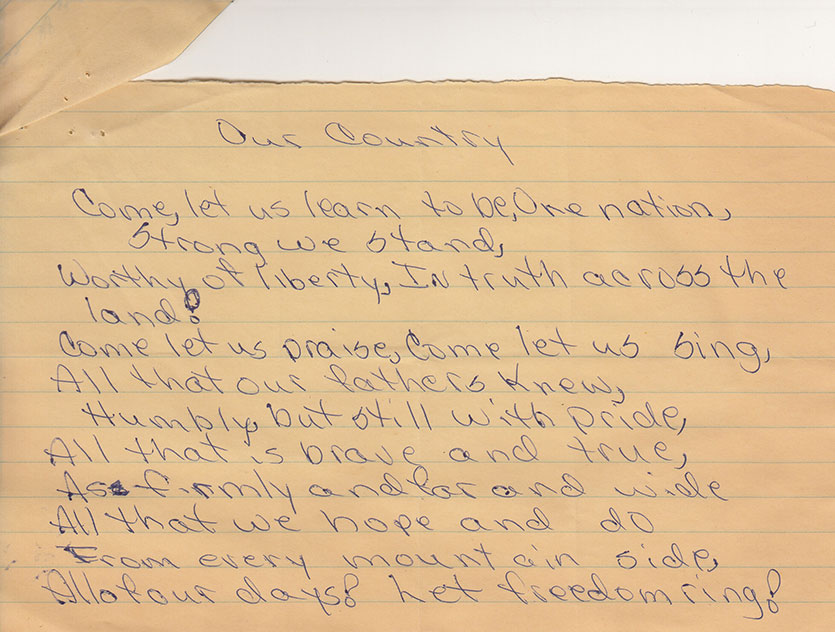 Our Country
Come, let us learn to be, One nation,
Strong we stand,
Worthy of liberty, In truth across the
land!
Come let us praise, Come let us sing,
All that our fathers knew,
Humbly, but still with pride,
All that is brave and true,
As firmly and far and wide
All that we hope and do
From every mountain side,
All of our days! Let freedom ring!